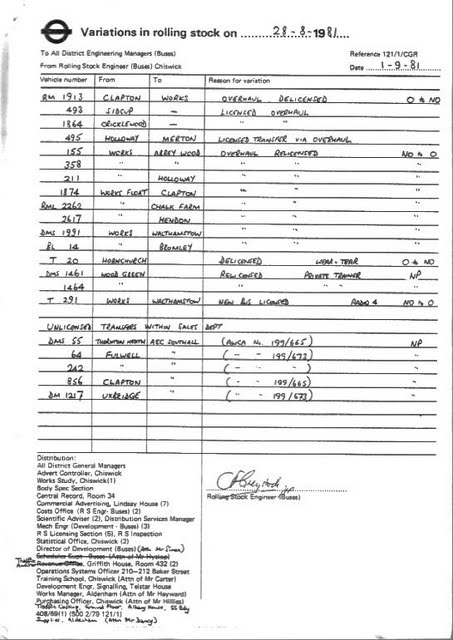 Variations in rolling stock on 28-8-1981
To All District Engineering Managers (Buses) Reference 121/1/CGR
From Rolling Stock Engineer (Buses) Chiswick Date 1-9-81
Vehicle number From To Reason for variation
RM 1913 CLAPTON WORKS OVERHAUL DELICENSED O to NO
493 SIDCUP — LICENSED OVERHAUL
1864 CRICKLEWOOD — " "
495 HOLLOWAY MERTON LICENSED TRANSFER VIA OVERHAUL
155 WORKS ABBEY WOOD OVERHAUL RELICENSED NO to O
358 " " " " "
211 " HOLLOWAY " " "
1874 WORKS FLOAT CLAPTON " " "
RML 2262 " CHALK FARM " " "
2617 " HENDON " " "
DMS 1991 WORKS WALTHAMSTOW " " "
BL 14 " BROMLEY " " "
T 20 HORNCHURCH DELICENSED WEAR + TEAR O to NO
DMS 1461 WOOD GREEN RELICENSED PRIVATE TRAINER NP
1464 " " " " "
T 291 WORKS WALTHAMSTOW NEW BUS LICENSED RADIO 4 NO to O
UNLICENSED TRANSFERS WITHIN SALES DEPT
DMS 55 THORNTON HEATH AEC SOUTHALL (AWCA No. 199/665) NP
64 FULWELL " ( " " 199/673) "
242 " " ( " " " ) "
856 CLAPTON " ( " " 199/665) "
DM 1217 UXBRIDGE " ( " " 199/673) "
Distribution:
All District General Managers
Advert Controller, Chiswick
Works Study, Chiswick (1)
Body Spec Section
Central Record, Room 34
Commercial Advertising, Lindsay House (7)
Costs Office (R S Engr- Buses) (2)
Scientific Adviser (2), Distribution Services Manager
Mech Engr (Development - Buses) (3)
R S Licensing Section (5), R S Inspection
Statistical Office, Chiswick (2)
Director of Development (Buses)
Schedules Supt - Buses (Attn of Mr Hyslop)
Revenue Office, Griffith House, Room 432 (2)
Operations Systems Officer 210-212 Baker Street
Training School, Chiswick (Attn of Mr Carter)
Development Engr, Signalling, Telstar House
Works Manager, Aldenham (Attn of Mr Hayward)
Purchasing Officer, Chiswick (Attn of Mr Hillies)
408/69(1) (500 2/79 121/1)
Rolling Stock Engineer (Buses)